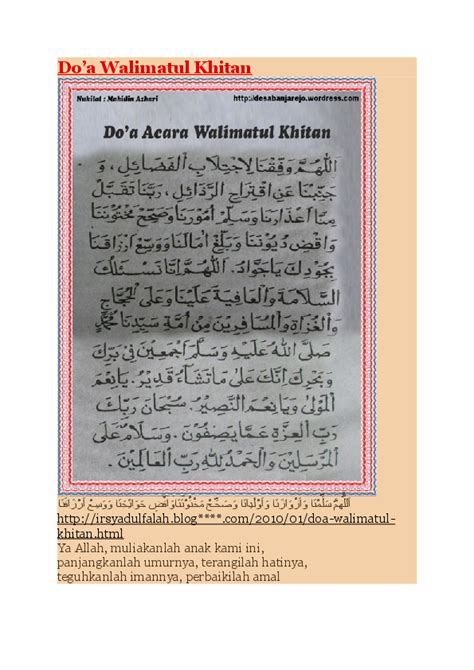 Do'a Walimatul Khitan
Nukilat : Mahidin Azhari http://desabanjarejo.wordpress.com
Do'a Acara Walimatul Khitan
اَللّٰهُمَّ وَفِّقْنَا لِاجْتِلَابِ الْفَضَائِلِ ، وَ
جَنِّبْنَا عَنِ اقْتِرَاحِ الرَّذَائِلِ ، رَبَّنَا تَقَبَّلْ
مِنَّا أَعْذَارَنَا وَسَلِّمْ أُمُوْرَنَا وَصَحِّحْ مَخْتُوْنَنَا
وَاقْضِ دُيُوْنَنَا وَبَلِّغْ اٰمَالَنَا وَوَسِّعْ أَرْزَاقَنَا
بِجُوْدِكَ يَاجَوَّادُ . اَللّٰهُمَّ إِنَّا نَسْئَلُكَ
السَّلَامَةَ وَالْعَافِيَةَ عَلَيْنَا وَعَلَى الْحُجَّاجِ
وَالْغُزَاةِ وَالْمُسَافِرِيْنَ مِنْ أُمَّةِ سَيِّدِنَا مُحَمَّدٍ
صَلَّى اللهُ عَلَيْهِ وَسَلَّمَ أَجْمَعِيْنَ فِيْ بَرِّكَ
وَبَحْرِكَ إِنَّكَ عَلَى مَاتَشَآءُ قَدِيْرٌ . يَانِعْمَ
الْمَوْلَى وَيَانِعْمَ النَّصِيْرُ . سُبْحَانَ رَبِّكَ
رَبِّ الْعِزَّةِ عَمَّا يَصِفُوْنَ . وَسَلَامٌ عَلَى
الْمُرْسَلِيْنَ وَالْحَمْدُ لِلّٰهِ رَبِّ الْعَالَمِيْنَ .
اَللّٰهُمَّ سَلِّمْنَا وَأَوْلَادَنَا وَصَحِّحْ مَخْتُوْنَنَا وَاقْضِ حَوَائِجَنَا وَوَسِعْ أَرْزَاقَنَا
http://irsyadulfalah.blog****.com/2010/01/doa-walimatul-
khitan.html
Ya Allah, muliakanlah anak kami ini,
panjangkanlah umurnya, terangilah hatinya,
teguhkanlah imannya, perbaikilah amal